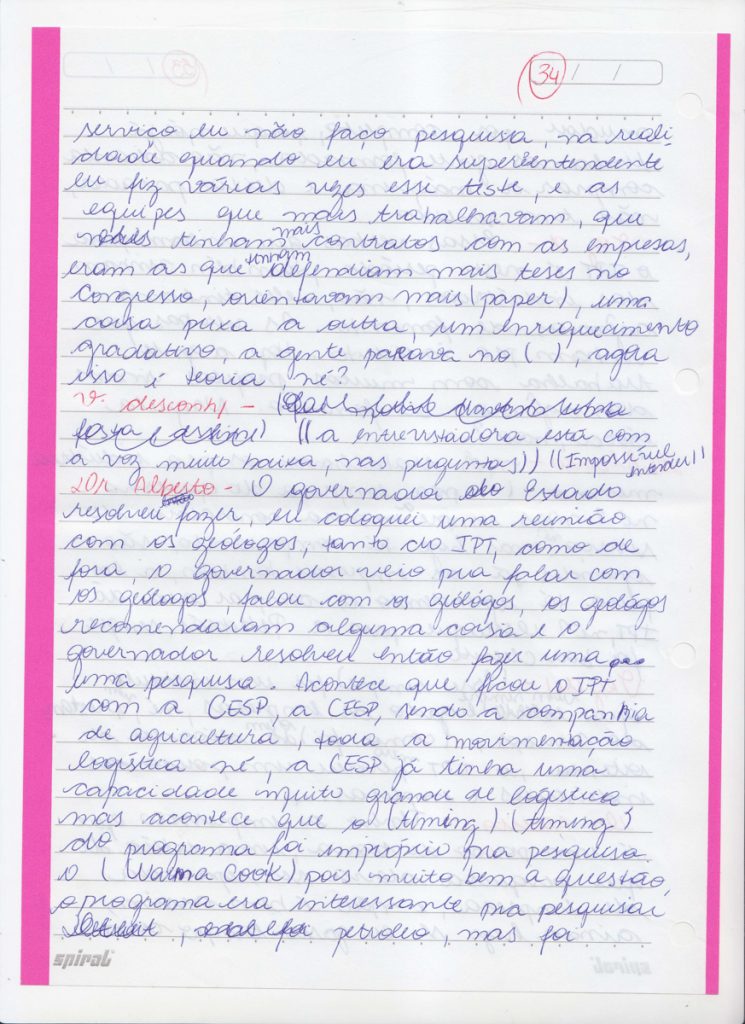 34 / /
serviço eu não faço pesquisa, na reali-
dade quando eu era superentendente
eu fiz várias vezes esse teste, e as
equipes que mais trabalhavam, que
tinham mais contratos com as empresas,
eram as que tinham defendiam mais teses no
Congresso, orientavam mais (paper), uma
coisa puxa a outra, um enriquecimento
gradativo, a gente parava no ( ), agora
isso é teoria, né?
V. desconh -
((a entrevistadora está com
a voz muito baixa, nas perguntas)) ((Impossível entender))
Dr. Alberto - O governador do Estado
resolveu fazer, eu coloquei uma reunião
com os geólogos, tanto do IPT, como de
fora, o governador veio pra falar com
os geólogos, falou com os geólogos, os geológos
recomendaram alguma coisa e o
governador resolveu então fazer uma
uma pesquisa. Acontece que ficou o IPT
com a CESP, a CESP, sendo a companhia
de agricultura, toda a movimentação
logística né, a CESP já tinha, uma
capacidade muito grande de logística
mas acontece que o (timing) (timing)
do programa foi impróprio pra pesquisa.
O (Walma Cook) pois muito bem a questão,
o programa era interessante pra pesquisar
petróleo, mas foi
spiral